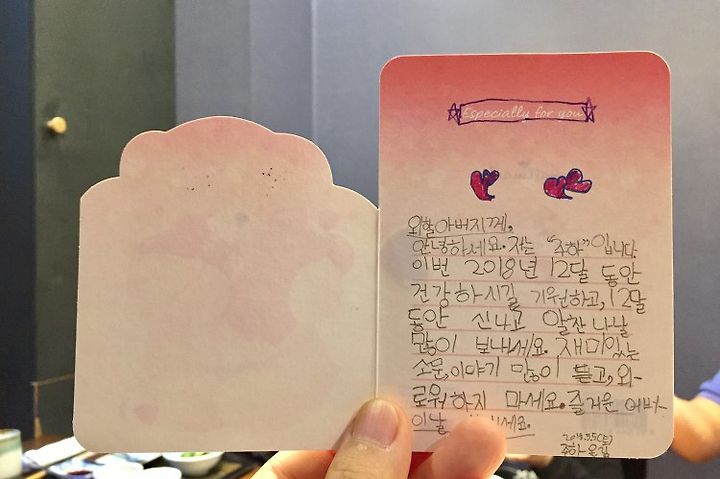 Especially for you
외할아버지께.
안녕하세요. 저는 "주하"입니다.
이번 2018년 12달 동안
건강하시길 기원하고, 12달
동안 신나고 알찬 나날
많이 보내세요. 재미있는
소문, 이야기 많이 듣고, 외-
로워하지 마세요. 즐거운 어버-
이날 세요.
2018.5.5(토)
주하 올림